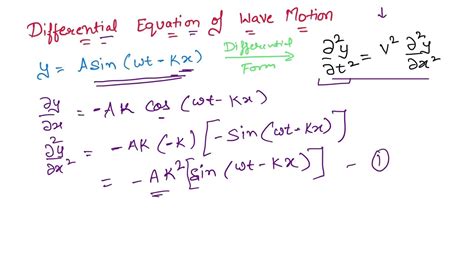 Differential Equation of Wave Motion
y = Asin(ωt-Kx) Differential Form → ∂²y/∂t² = V² ∂²y/∂x²
∂y/∂x = -AK cos(ωt-Kx)
∂²y/∂x² = -AK(-K)[-Sin(ωt-Kx)]
= -AK²[Sin(ωt-Kx)] - ①